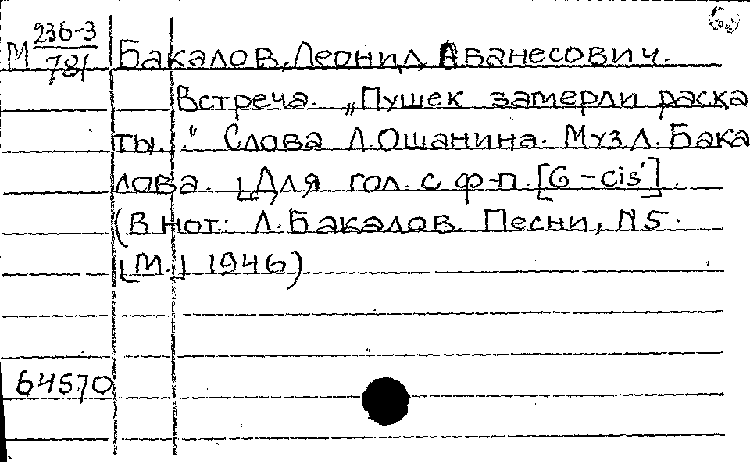 М 236-3/781 Бакалов, Леонид Аванесович.
Встреча. „Пушек замерли раска
ты..“ Слова Л.Ошанина. Муз Л. Бака
лова. [Для гол. с ф-п. [G-cis']
(В нот: Л. Бакалов. Песни, N5.
[М.] 1946)
64570